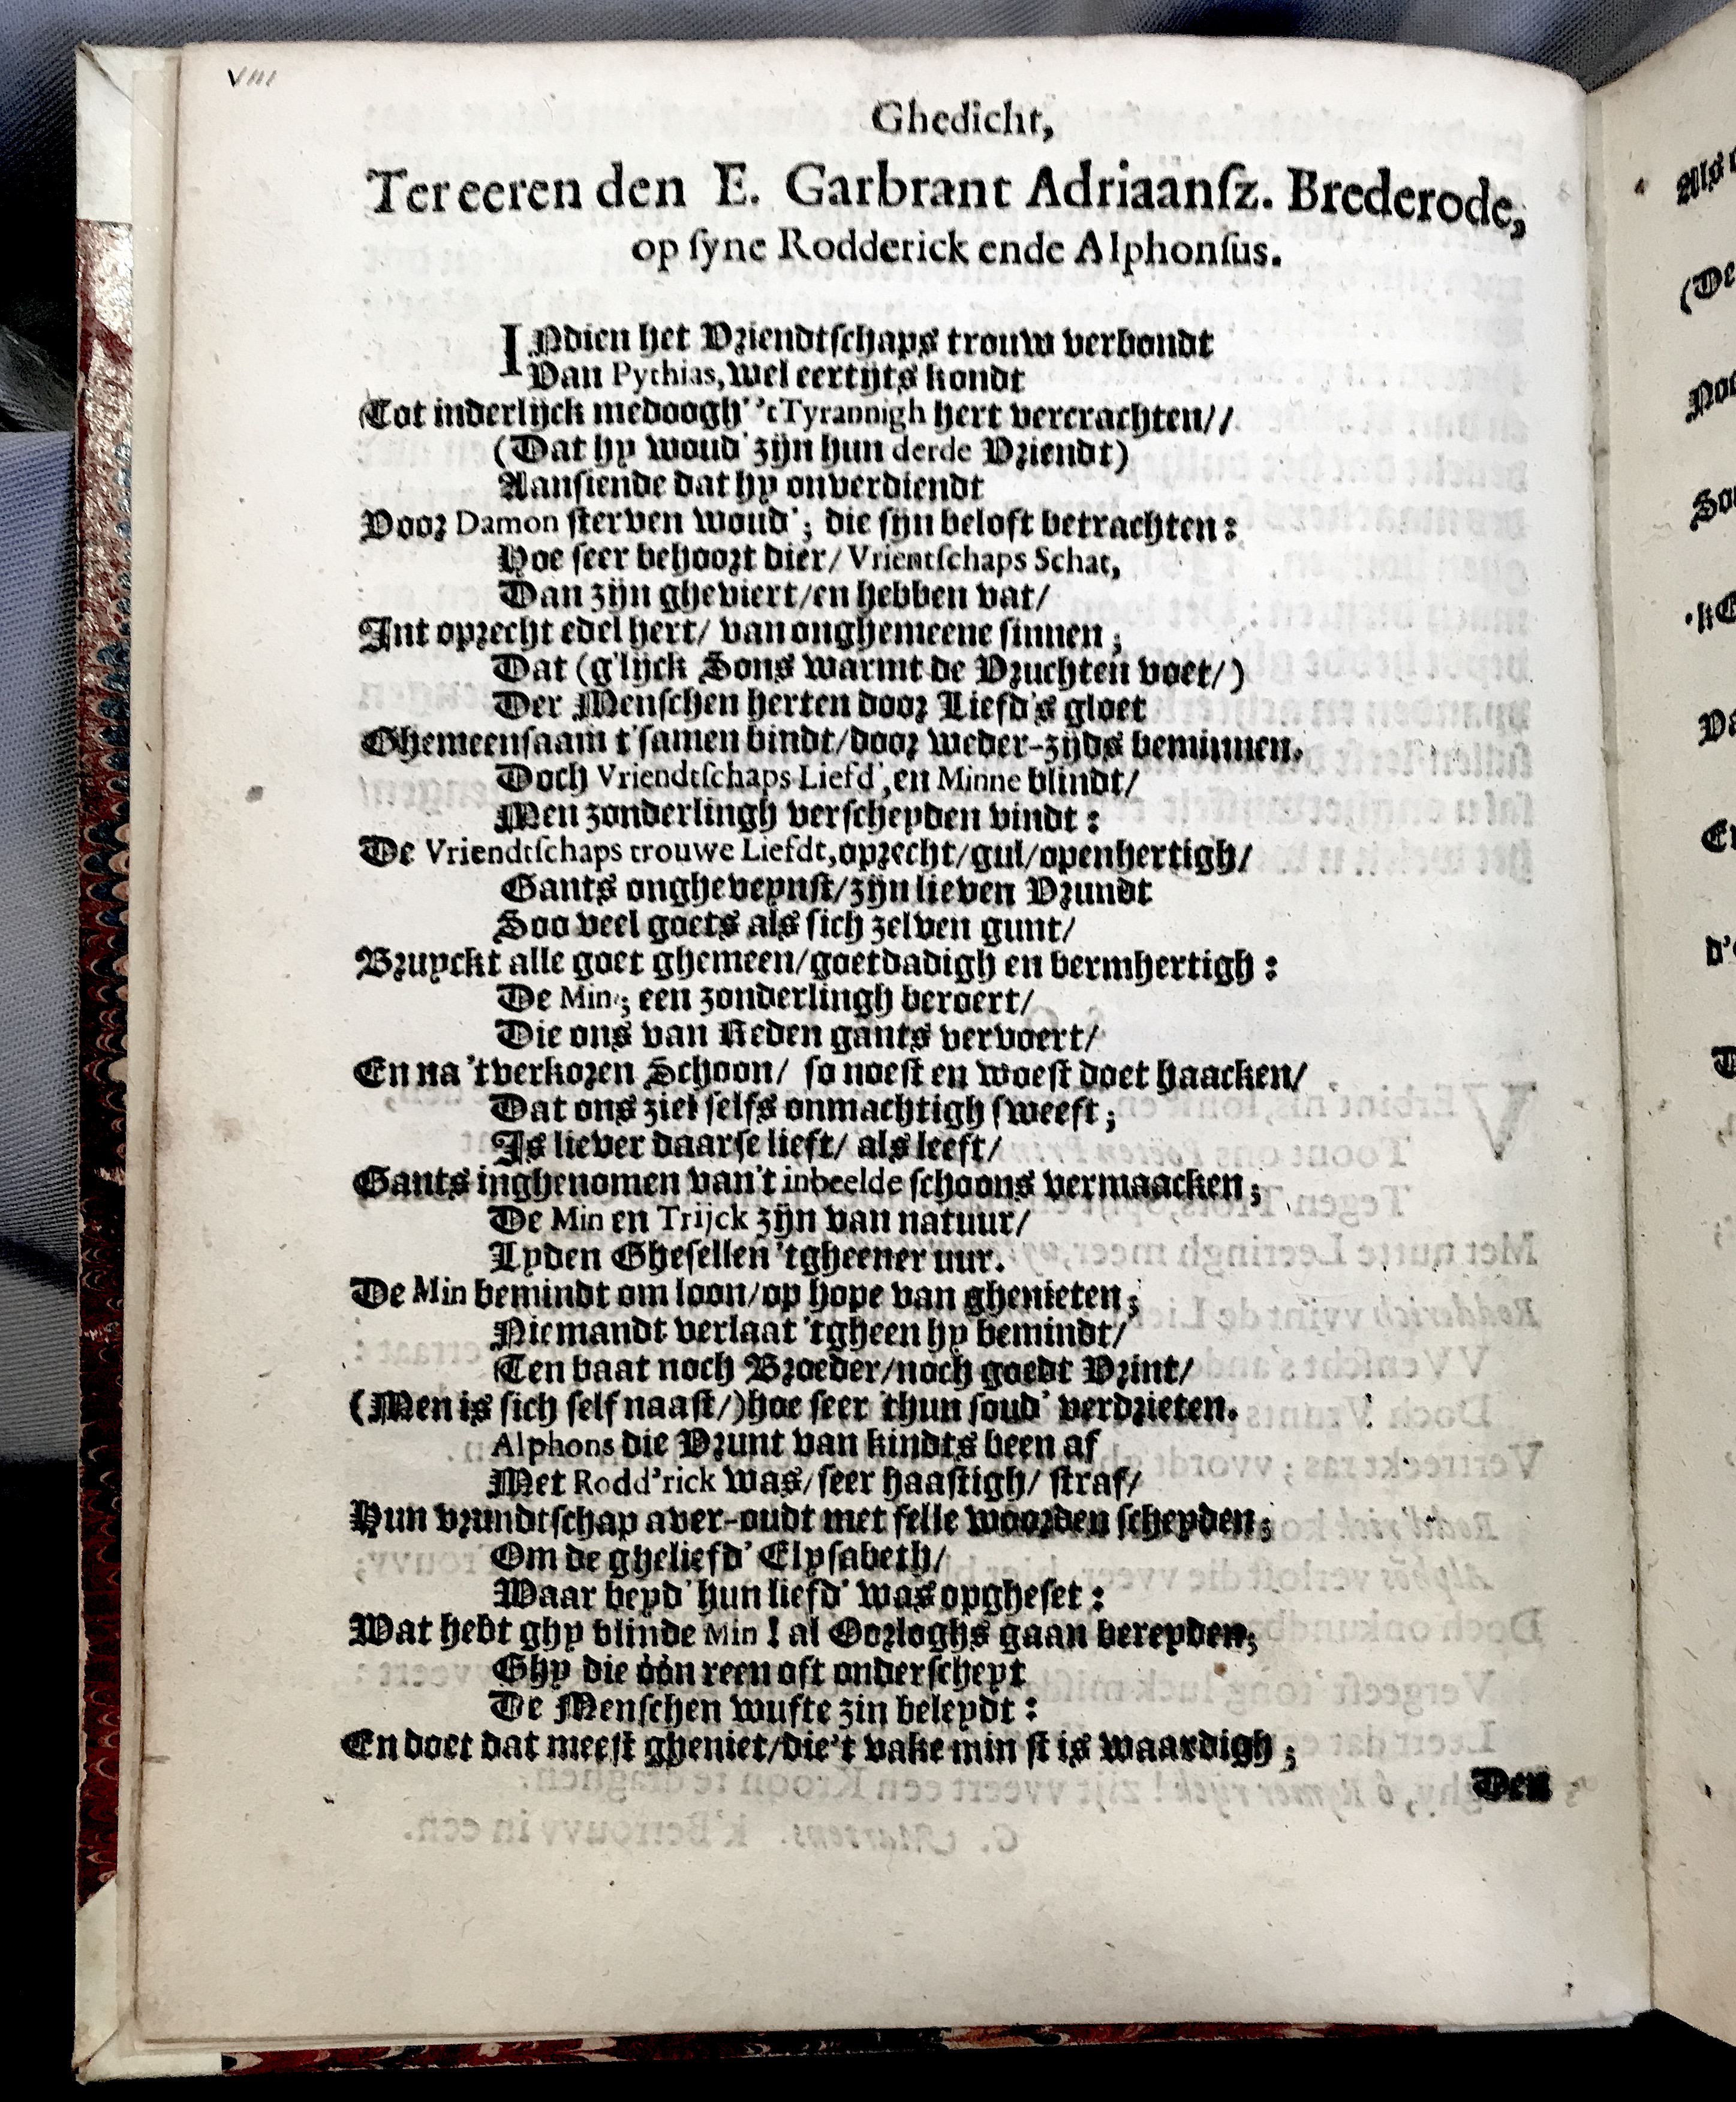 VIII
Ghedicht,
Ter eeren den E. Garbrant Adriaansz. Brederode,
op syne Rodderick ende Alphonsus.
INdien het Vriendtschaps trouw verbondt
Van Pythias, wel eertijts kondt
Tot inderlijck medoogh' 't Tyrannigh hert vercrachten//
(Dat hy woud' zijn hun derde Vriendt)
Aansiende dat hy onverdiendt
Voor Damon sterven woud'; die sijn beloft betrachten:
Hoe seer behoort dier/ Vrientschaps Schat,
Dan zijn gheviert/en hebben vat/
Int oprecht edel hert/ van onghemeene sinnen;
Dat (g'lijck Sons warmt de Vruchten voet/)
Der Menschen herten door Liefd's gloet
Ghemeensaam t'samen bindt/door weder-zijds beminnen.
Doch Vriendtschaps Liefd', en Minne blindt/
Men zonderlingh verscheyden vindt:
De Vriendtschaps trouwe Liefdt, oprecht/gul/openhertigh/
Gants ongheveynst/zijn lieven Vrundt
Soo veel goets als sich zelven gunt/
Bruyckt alle goet ghemeen/goetdadigh en bermhertigh:
De Min; een zonderlingh beroert/
Die ons van Reden gants vervoert/
En na 'tverkozen Schoon/ so noest en woest doet haacken/
Dat ons ziel selfs onmachtigh sweeft;
Is liever daarse lieft/ als leeft/
Gants inghenomen van't inbeelde schoons vermaacken;
De Min en Trijck zijn van natuur/
Lyden Ghesellen 'tgheener uur.
De Min bemindt om loon/op hope van ghenieten;
Niemandt verlaat 'tgheen hy bemindt/
Ten baat noch Broeder/noch goedt Vrint/
(Men is sich self naast/)hoe seer 'thun soud' verdrieten.
Alphons die Vrunt van kindts been af
Met Rodd'rick was/seer haastigh/ straf/
Hun vrundtschap aver-oudt met felle woorden scheyden;
Om de gheliefd' Elysabeth/
Waar beyd' hun liefd' was opgheset:
Wat hebt ghy blinde Min! al Oorloghs gaan bereyden;
Ghy die óón reen oft onderscheyt
De Menschen wufte zin beleydt:
En doet dat meest gheniet/die't vake min st is waardigh;
Den